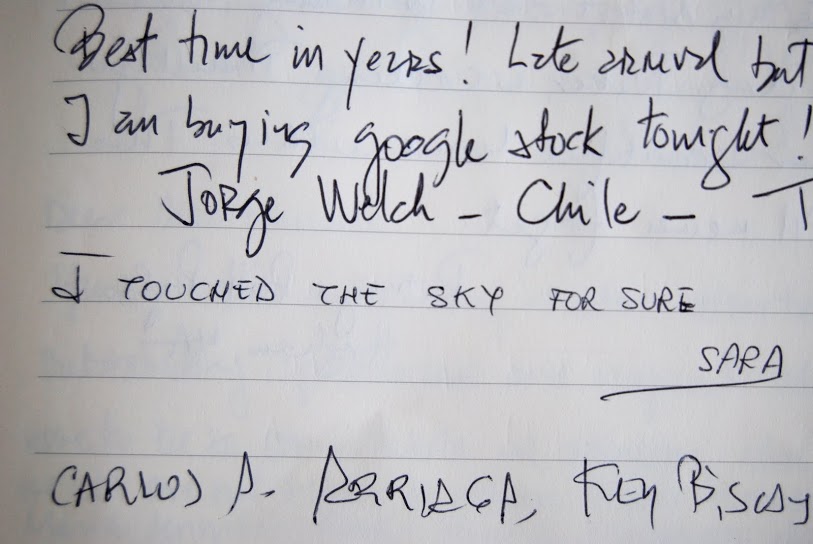 Best time in years! Late arrival but
I am buying google stock tonight!
Jorge Welch - Chile - T
I TOUCHED THE SKY FOR SURE
SARA
CARLOS A. ARRIAGA, Key Biscay